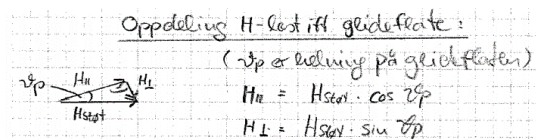 Oppdeling H-last ift glideflate:
(ϑp er helning på glideflaten)
ϑp H॥ H⊥
H॥ = Hstøt · cos ϑp
Hstøt
H⊥ = Hstøt · sin ϑp